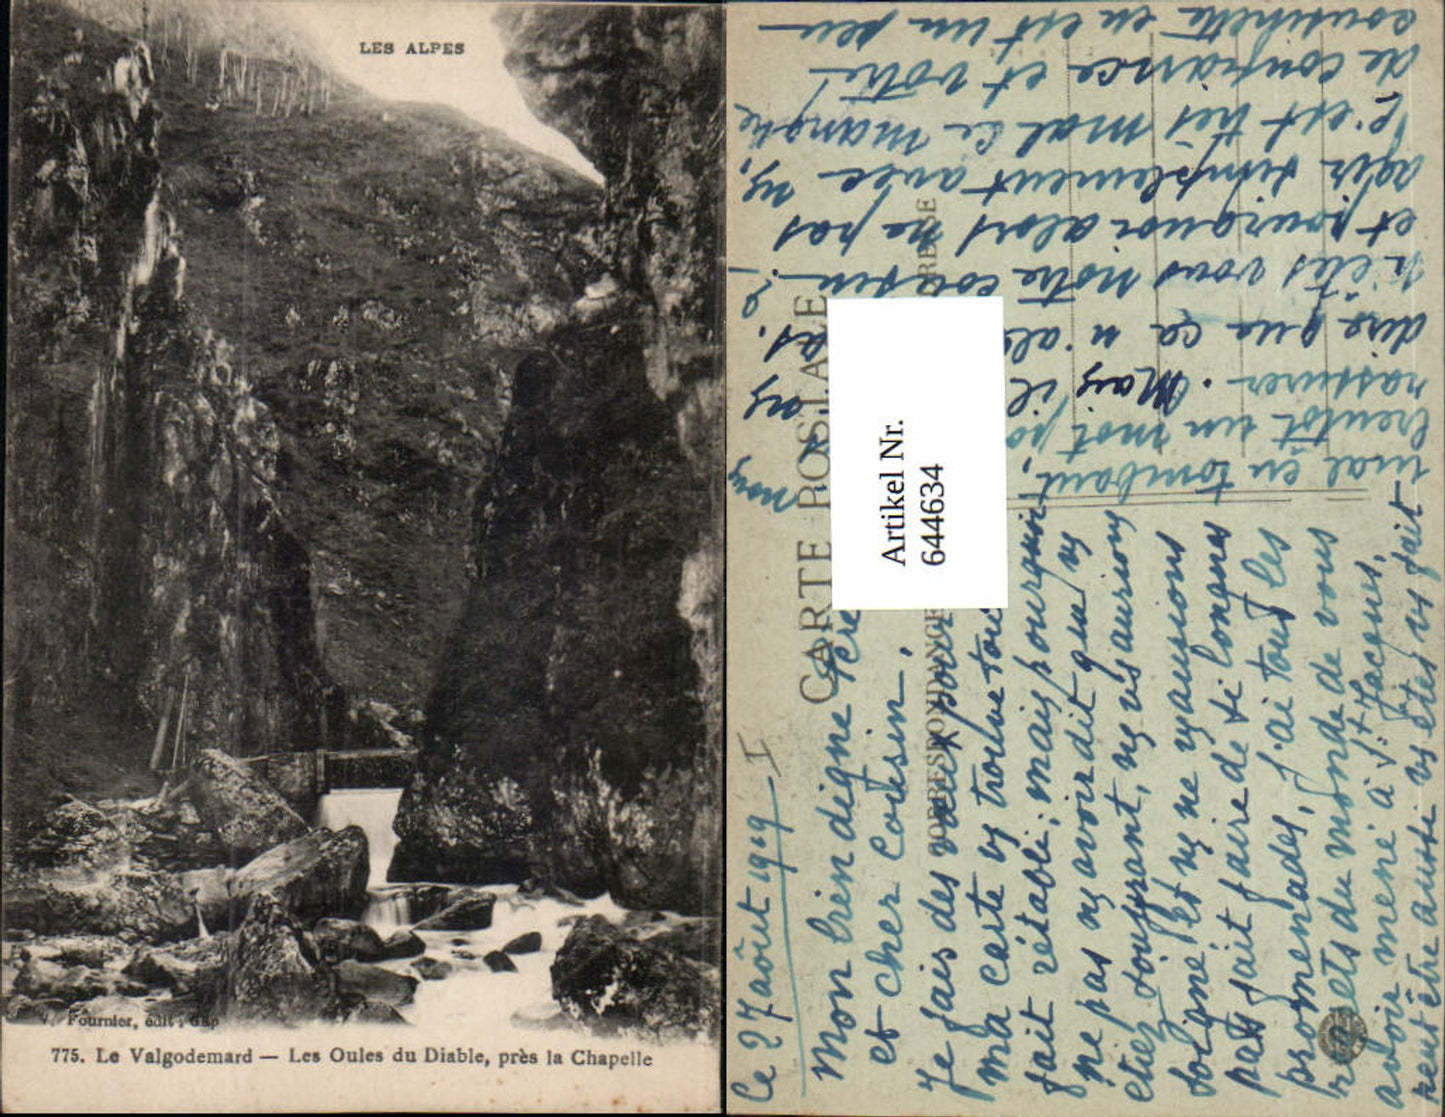 LES ALPES
V. Fournier, édit., Gap
775. Le Valgodemard — Les Oules du Diable, près la Chapelle
CARTE POSTALE
CORRESPONDANCE
Artikel Nr.
644634
Ce 27 août 1919 I
Mon bien digne Père
et cher Cousin.
Je fais des vœux pour
ma carte vs trouve tout
fait rétabli; mais pourquoi
ne pas ns avoir dit que vs
étiez souffrant, ns vs aurions
soigné et ns ne vs aurions
pas fait faire de si longues
promenades, j'ai tous les
regrets du monde de vous
avoir mené à St Jacques,
peut être aussi vs êtes vs fait
mal en tombant,
bientôt un mot
rassurer. Mais il
dire que ça n'
n'êtes vous notre cousin ?
et pourquoi alors ne pas
agir simplement avec ns,
c'est très mal ce manque
de confiance et votre
est un peu